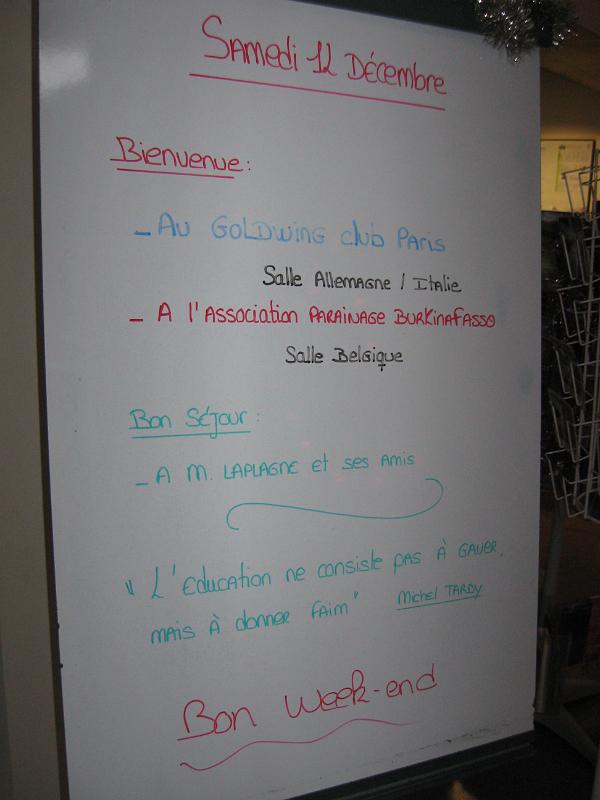 Samedi 12 Décembre
Bienvenue :
- Au GOLDWING club PARIS
Salle Allemagne / Italie
- A l'Association PARAINAGE BURKINAFASSO
Salle Belgique
Bon Séjour :
- A M. LAPLAGNE et ses Amis
" L'Education ne consiste pas À GAVER,
mais À donner faim" Michel TARDY
Bon Week-end